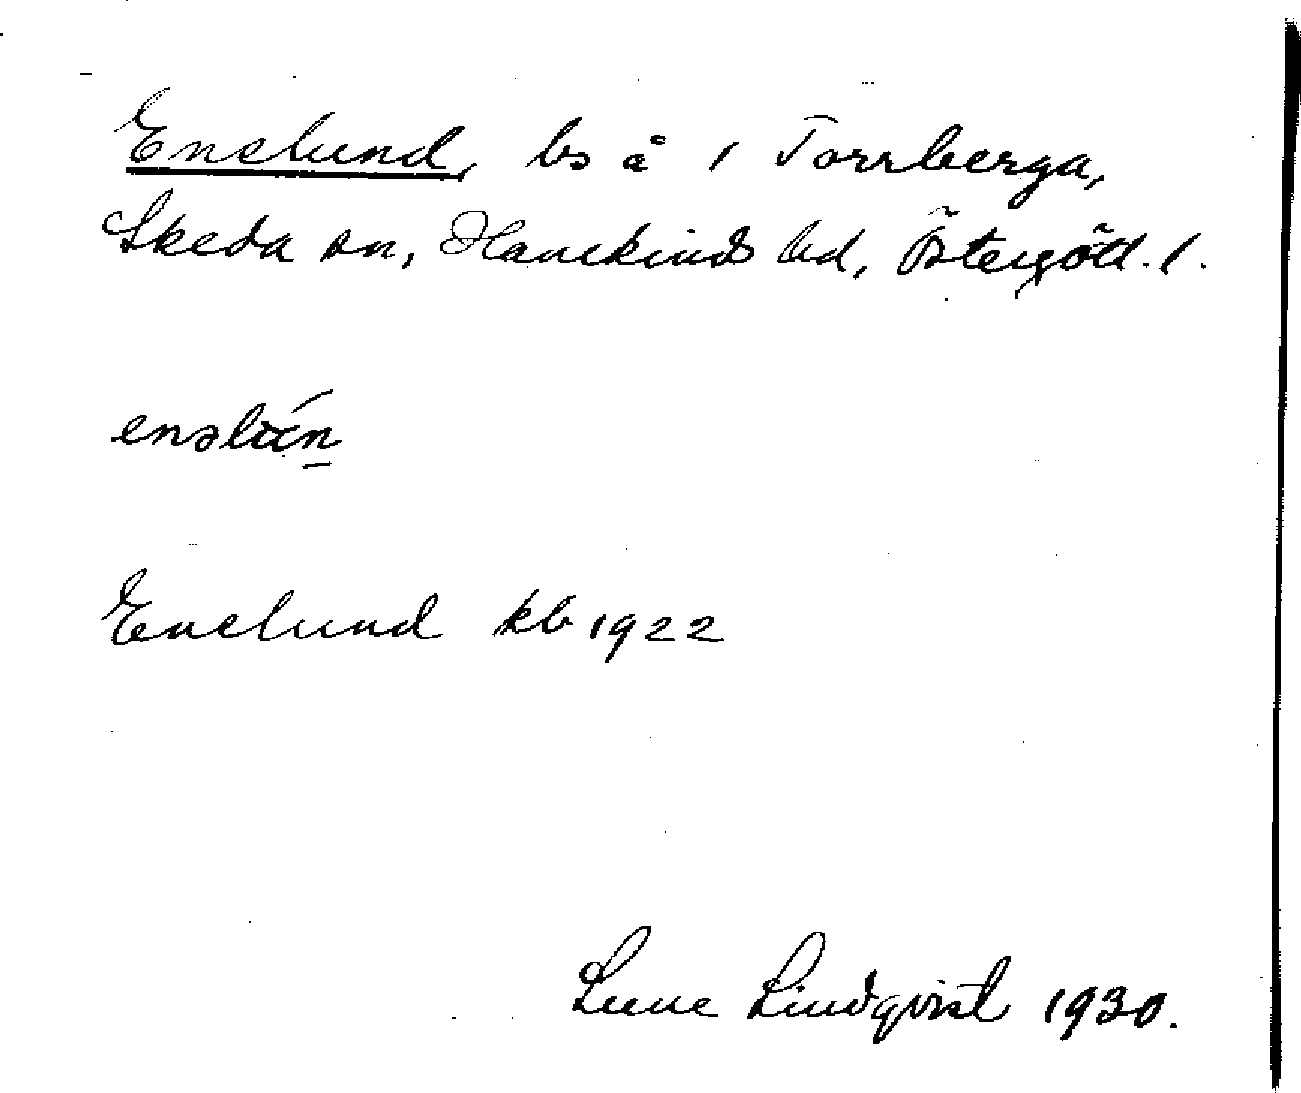 Enelund, bs å 1 Torrberga,
Skeda sn, Hanekinds hd, Östergötl. l.
Enelund kb 1922
Sune Lindqvist 1930.